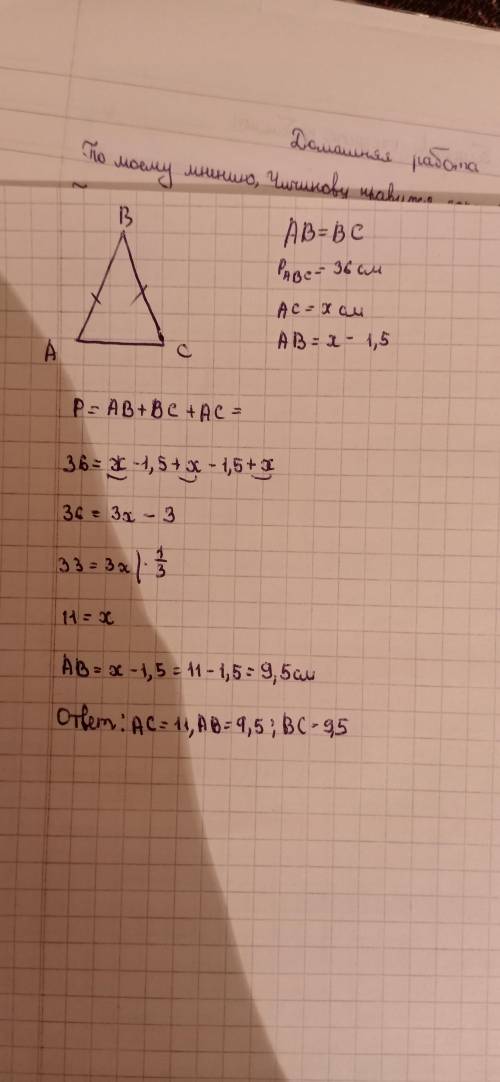 Домашняя работа
По моему мнению, Чичикову нравится
B
A
C
AB=BC
P_ABC= 36 см
AC= x см
AB= x - 1,5
P= AB+BC+AC=
36= x -1,5+x -1,5+x
36= 3x - 3
33=3x |· 1/3
11=x
AB= x -1,5=11-1,5=9,5см
Ответ: AC=11, AB=9,5; BC-9,5